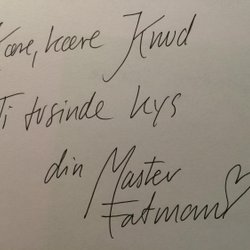 Kære, kære Knud
Ti tusinde kys
din Master
Fatman